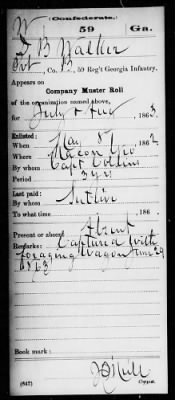 W (Confederate.)
59 Ga.
B Walker
Pvt, Co. B, 59 Reg't Georgia Infantry.
Appears on
Company Muster Roll
of the organization named above,
for July & Aug, 1863
Enlisted:
When May 8, 1862
Where Macon Geo
By whom Capt Collins
Period 3 yrs
Last paid:
By whom
To what time , 186 .
Present or absent Absent
Remarks: Captured with
foraging wagon June 29
1863
Book mark:
(642) Copyist.